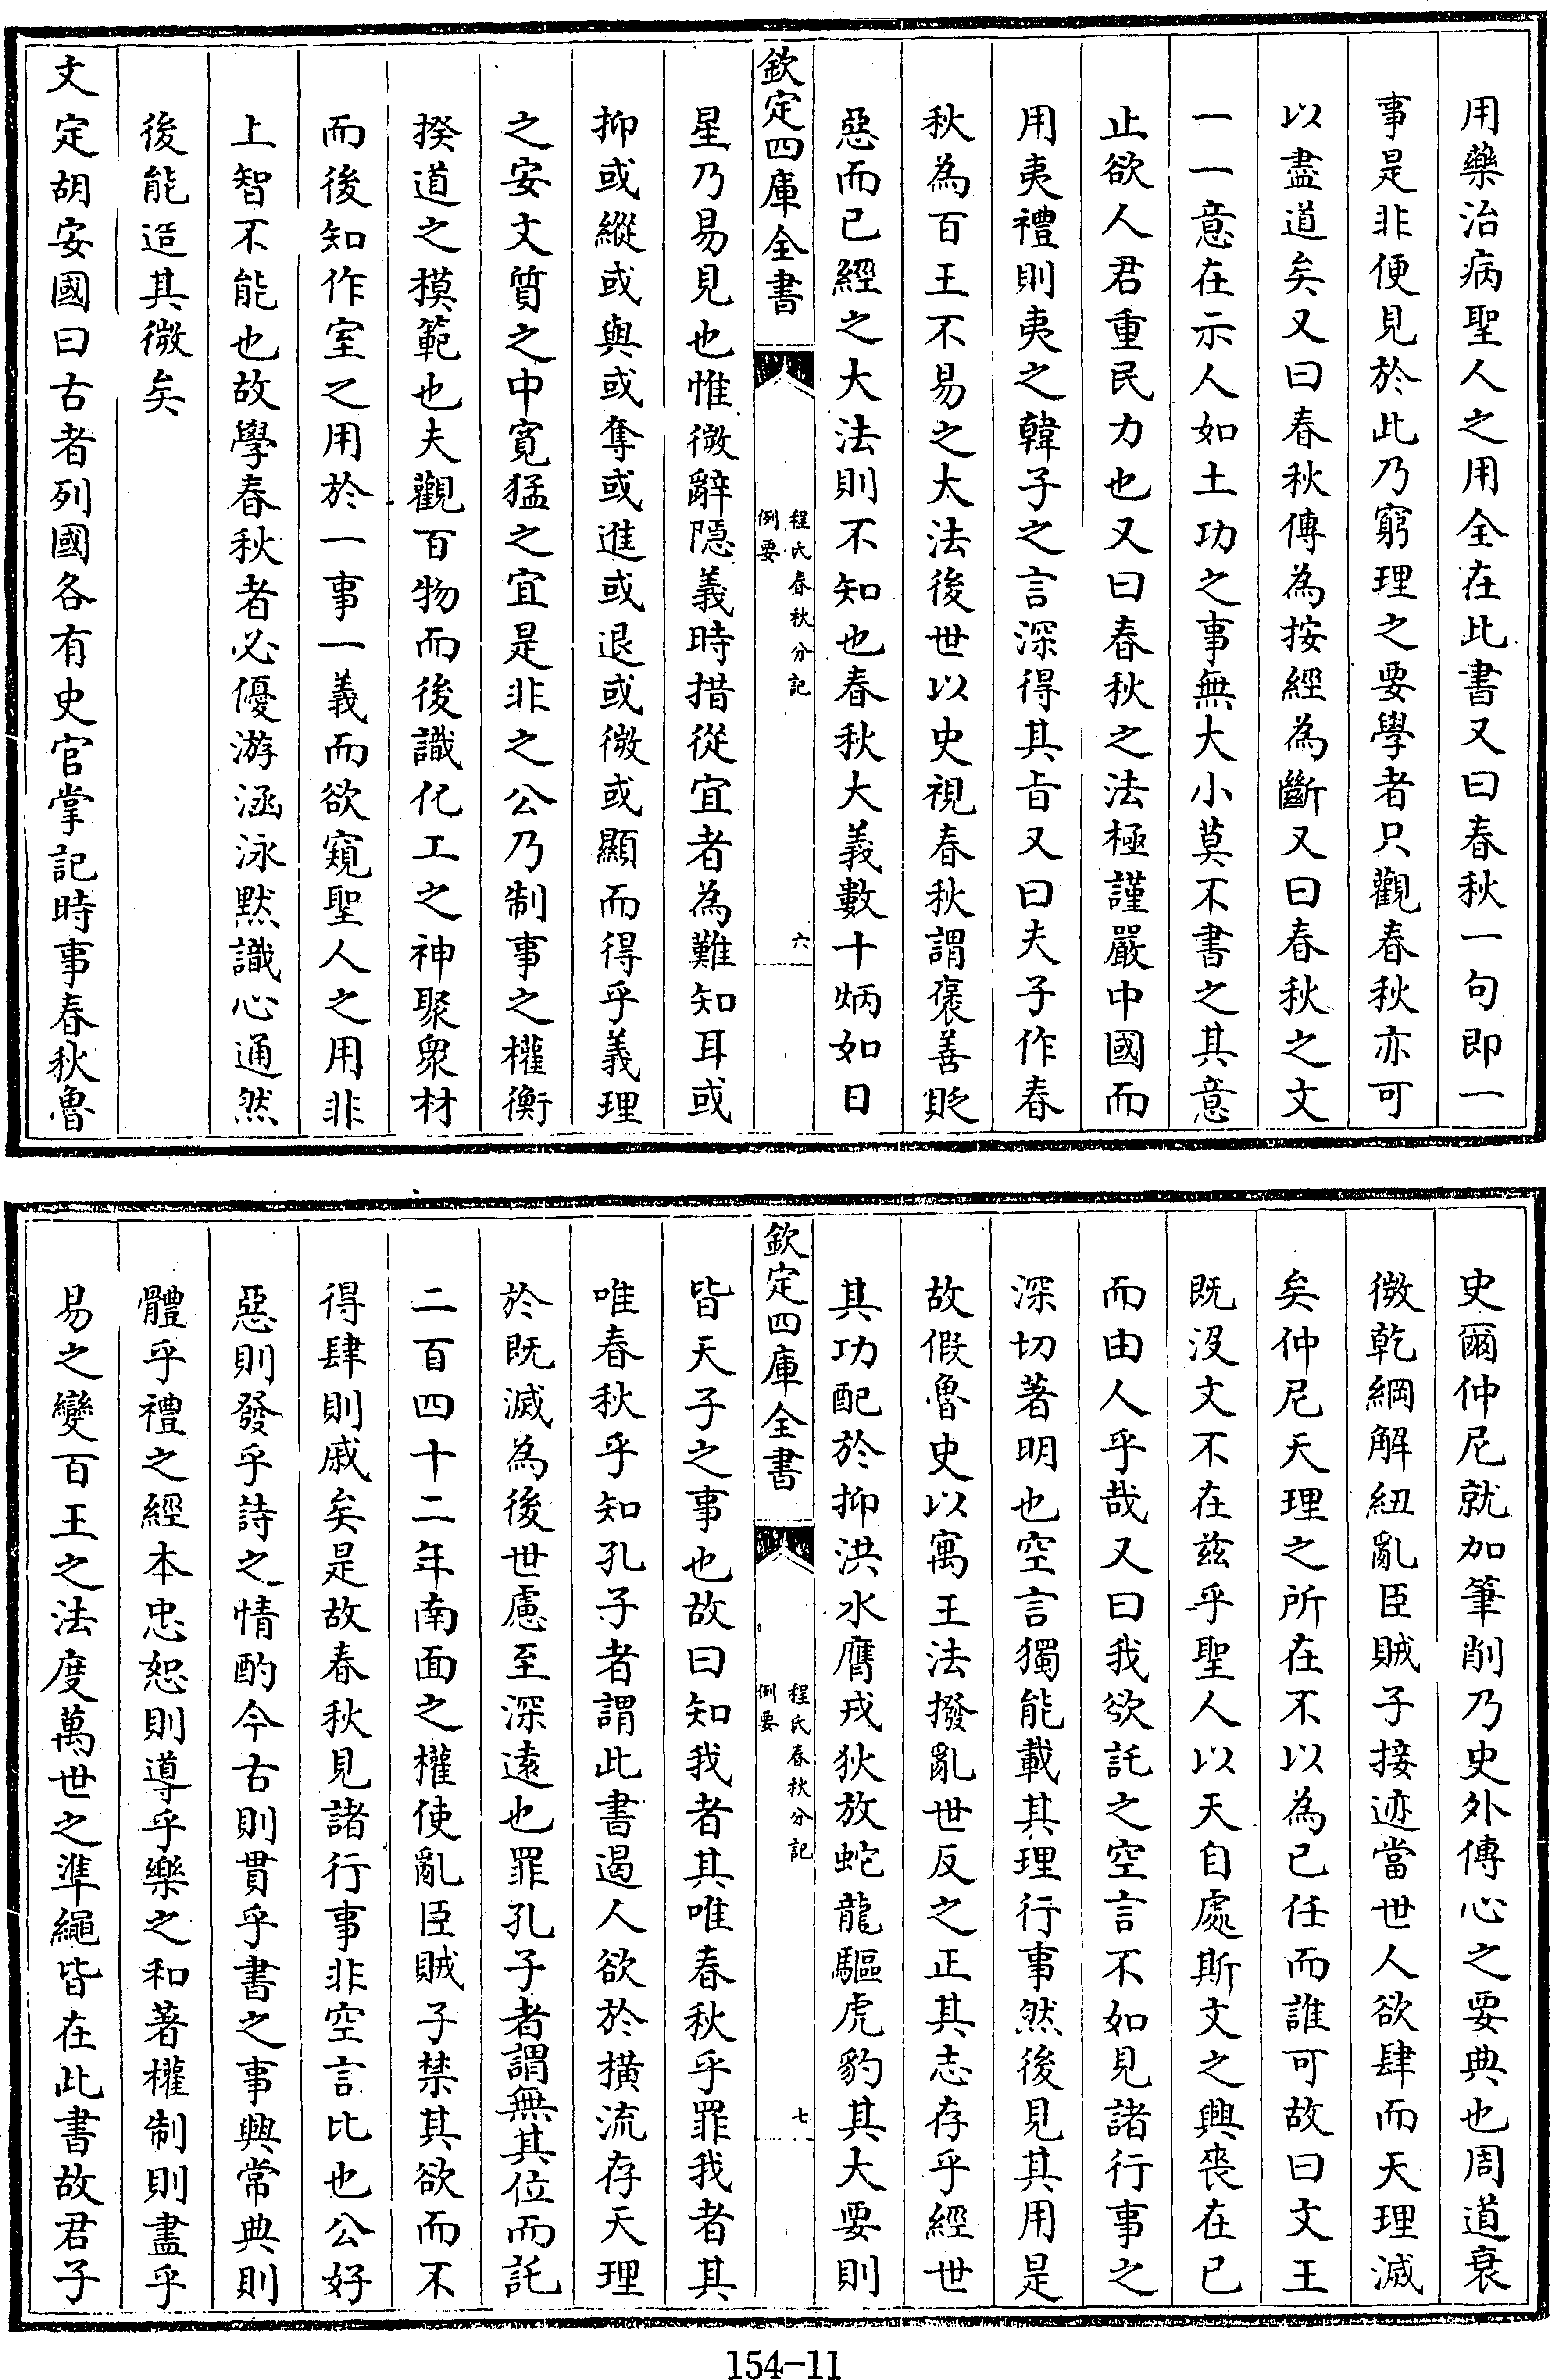 用藥治病聖人之用全在此書又曰春秋一句即一
事是非便見於此乃窮理之要學者只觀春秋亦可
以盡道矣又曰春秋傳為按經為斷又曰春秋之文
一一意在示人如土功之事無大小莫不書之其意
止欲人君重民力也又曰春秋之法極謹嚴中國而
用夷禮則夷之韓子之言深得其旨又曰夫子作春
秋為百王不易之大法後世以史視春秋謂褒善貶
惡而已經之大法則不知也春秋大義數十炳如日
欽定四庫全書
程氏春秋分記
例要
六
星乃易見也惟微辭隱義時措從宜者為難知耳或
抑或縱或與或奪或進或退或微或顯而得乎義理
之安文質之中寬猛之宜是非之公乃制事之權衡
揆道之模範也夫觀百物而後識化工之神聚衆材
而後知作室之用於一事一義而欲窺聖人之用非
上智不能也故學春秋者必優游涵泳默識心通然
後能造其微矣
文定胡安國曰古者列國各有史官掌記時事春秋魯
史爾仲尼就加筆削乃史外傳心之要典也周道衰
微乾綱解紐亂臣賊子接迹當世人欲肆而天理滅
矣仲尼天理之所在不以為已任而誰可故曰文王
既沒文不在茲乎聖人以天自處斯文之興喪在已
而由人乎哉又曰我欲託之空言不如見諸行事之
深切著明也空言獨能載其理行事然後見其用是
故假魯史以寓王法撥亂世反之正其志存乎經世
其功配於抑洪水膺戎狄放蛇龍驅虎豹其大要則
欽定四庫全書
程氏春秋分記
例要
七
皆天子之事也故曰知我者其唯春秋乎罪我者其
唯春秋乎知孔子者謂此書遏人欲於橫流存天理
於既滅為後世慮至深遠也罪孔子者謂無其位而託
二百四十二年南面之權使亂臣賊子禁其欲而不
得肆則戚矣是故春秋見諸行事非空言比也公好
惡則發乎詩之情酌今古則貫乎書之事興常典則
體乎禮之經本忠恕則導乎樂之和著權制則盡乎
易之變百王之法度萬世之準繩皆在此書故君子
154-11